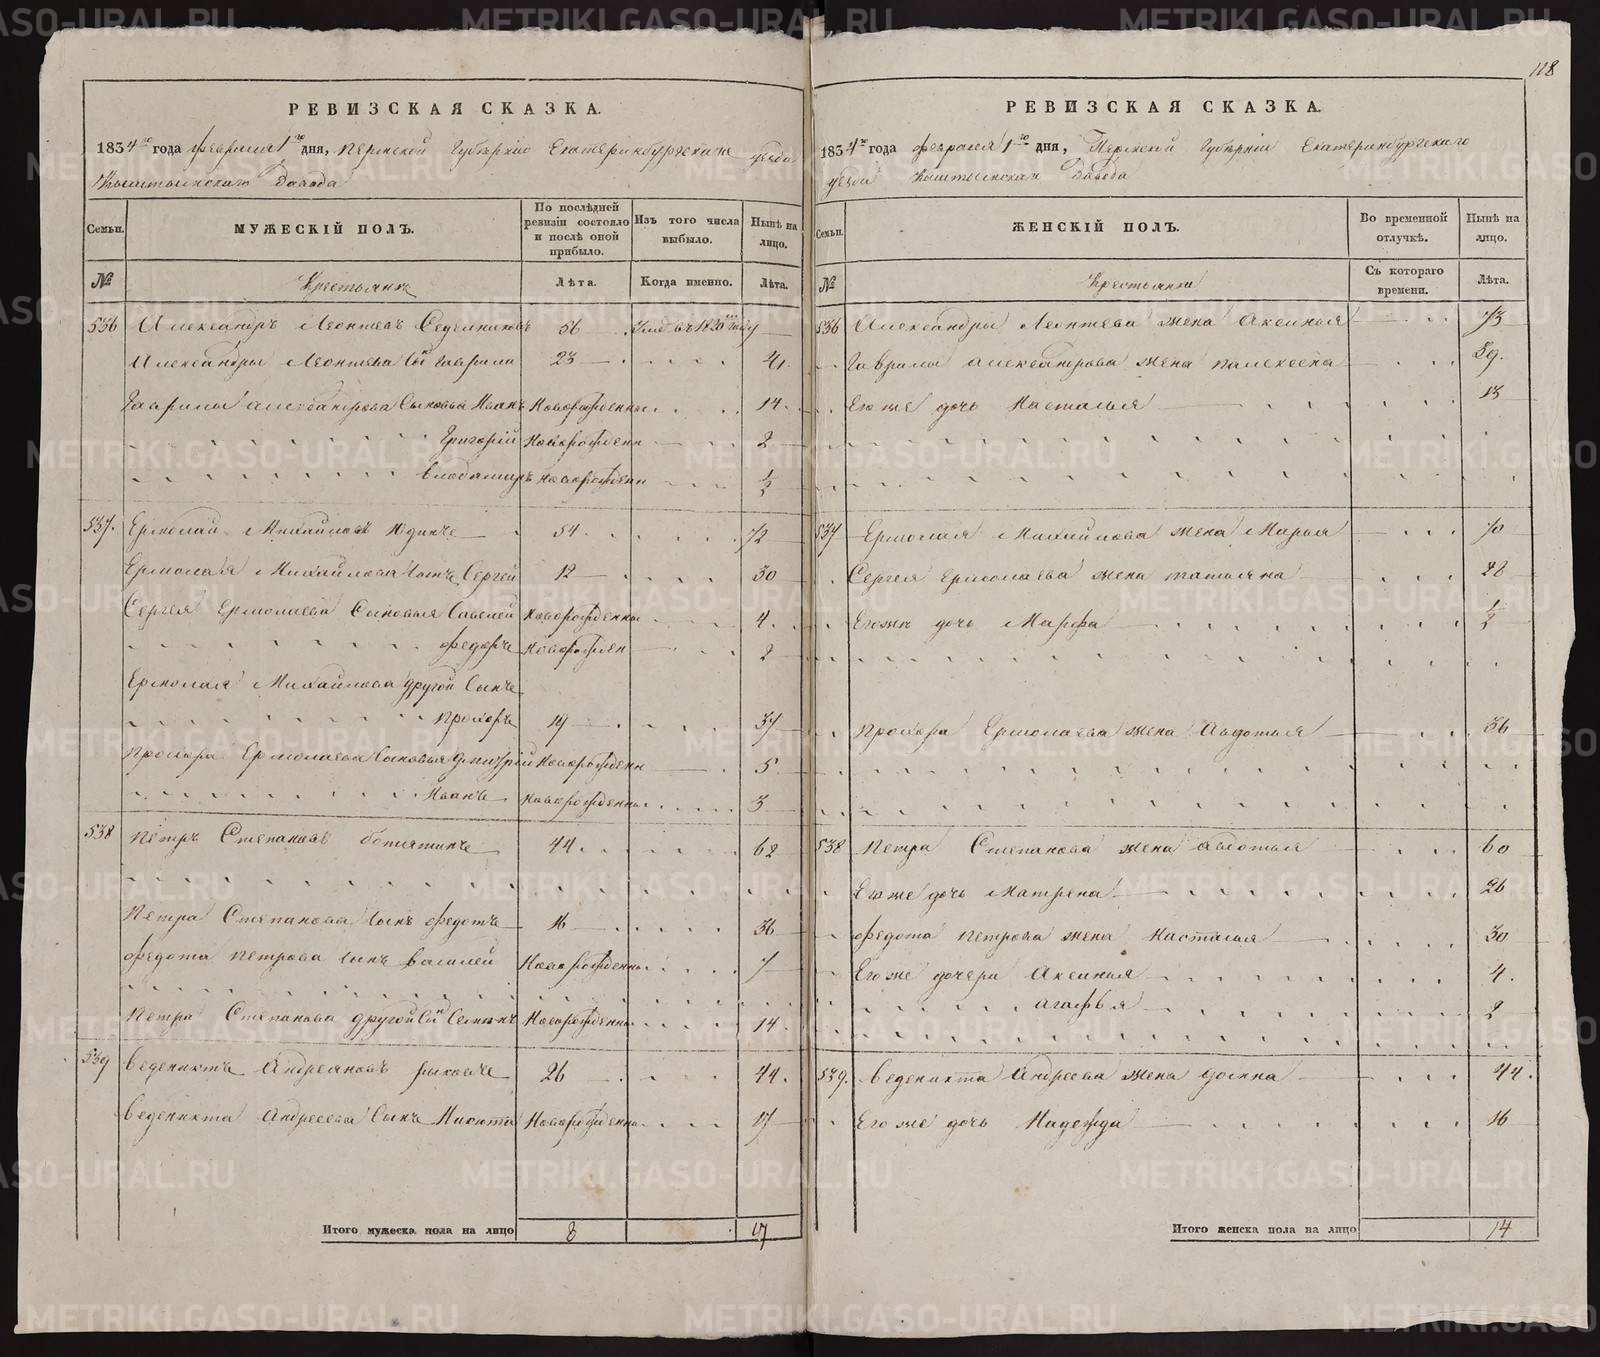 118
РЕВИЗСКАЯ СКАЗКА.
1834го года февраля 1го дня, Пермской Губернiи Екатеринбургскаго уезда
Кыштымскаго Завода
Семьи.
МУЖЕСКIЙ ПОЛЪ.
По послѣдней ревизiи состояло и послѣ оной прибыло.
Изъ того числа выбыло.
Нынѣ на лицо.
№
Крестьяне
Лѣта.
Когда именно.
Лѣта.
536 Александръ Леонтьевъ Седельниковъ 56 году
Александра Леонтьева сынъ Гаврила 23 41
Гаврилы Александрова сыновья Иванъ Новорожденны 14
Григорiй Новорожден 2
Владимиръ Новорожден 1/2
537. Ермолай Михайловъ Юдинъ 54 72
Ермолая Михайлова сынъ Сергей 12 30
Сергея Ермолаева Сыновья Савелей Новорожденны 4
Федоръ Новорожден 2
Ермолая Михайлова другой Сынъ
Прохоръ 19 37
Прохора Ермолаева Сыновья Дмитрiй Новорожденн 5
Иванъ Новорожденны 3
538 Петръ Степановъ 44 62
Петра Степанова сынъ Федотъ 16 36
Федота Петрова сынъ Василей Новорожденны 7
Петра Степанова другой Сынъ Новорожденны 14
539 Веденихтъ Андреяновъ Рыковъ 26 44
Веденихта Андреева Сынъ Никита Новорожденны 17
Итого мужеска пола на лицо 8 17
РЕВИЗСКАЯ СКАЗКА.
1834го года февраля 1го дня, Пермской Губернiи Екатеринбургскаго
уезда Кыштымскаго Завода
Семьи.
ЖЕНСКIЙ ПОЛЪ.
Во временной отлучкѣ.
Нынѣ на лицо.
№
Крестьянки
Съ котораго времени.
Лѣта.
536 Александры Леонтьева жена Аксинья 73
Гаврилы Александрова жена Палексена 39.
Его же дочь Насталья 13
537 Ермолая Михайлова жена Марья 70
Сергея Ермолаева жена Татьяна 28
Его же дочь Марфа 1/2
Прохора Ермолаева жена Авдотья 36
538 Петра Степанова жена Авдотья 60
Его же дочь Матрена 26
Федота Петрова жена Насталья 30
Его же дочери Аксинья 4.
Агафья 2
539. Веденихта Андреева жена Домна 44.
Его же дочь Надежда 16
Итого женска пола на лицо 14
METRIKI.GASO-URAL.RU